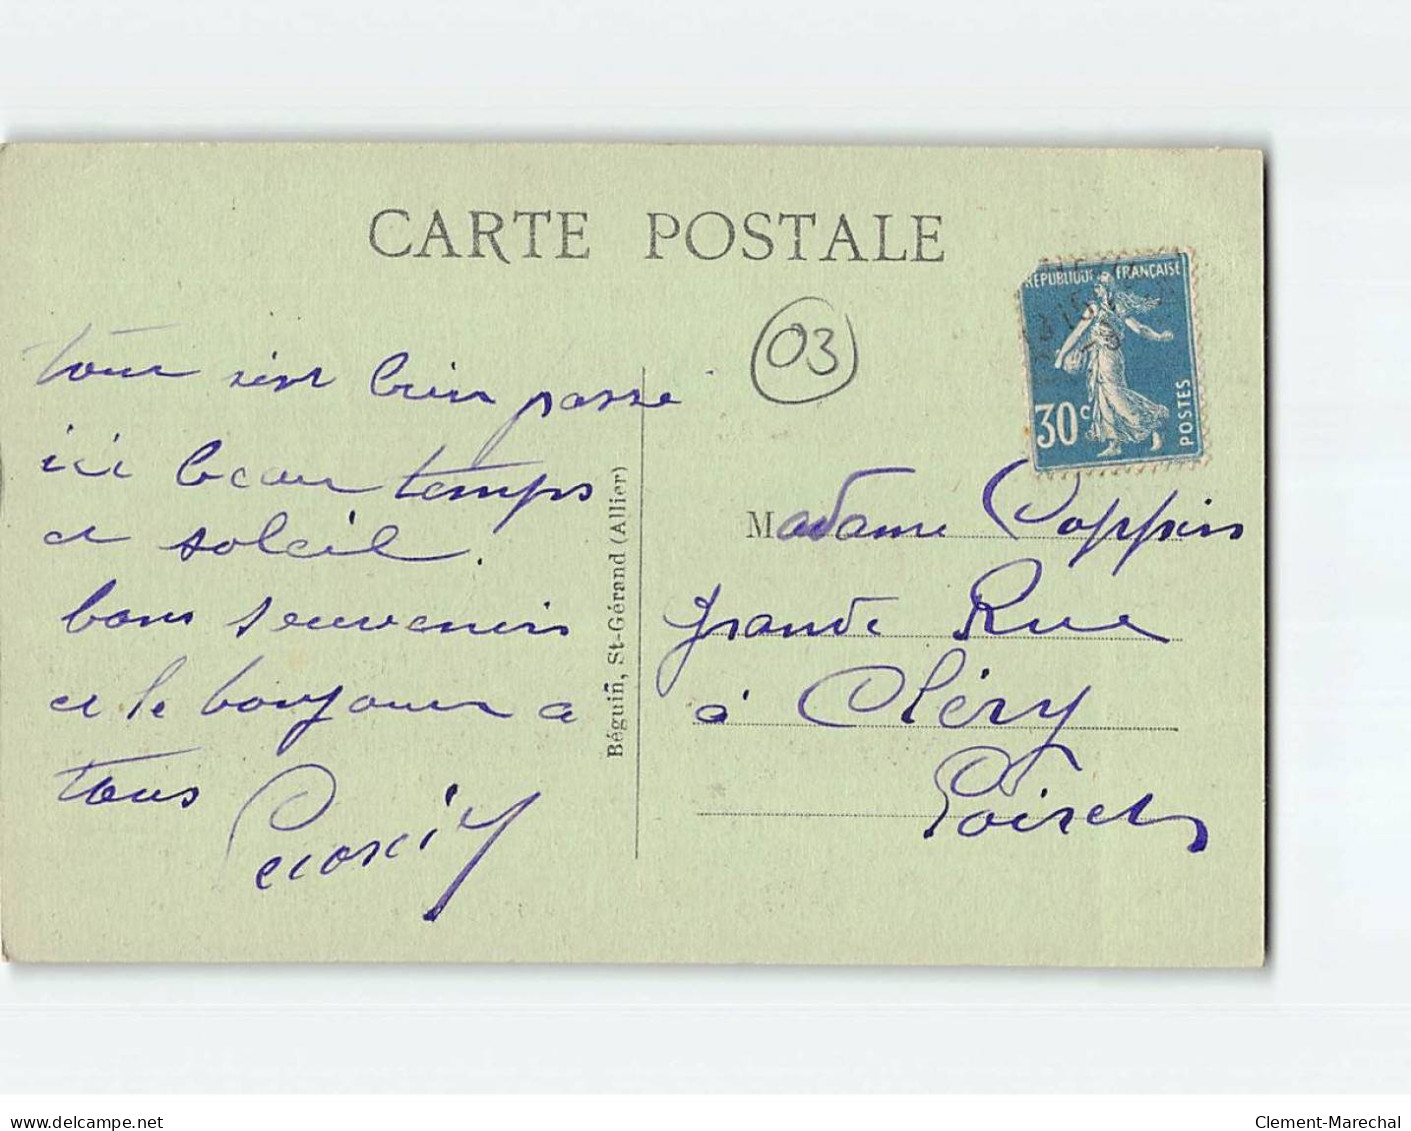 CARTE POSTALE
RÉPUBLIQUE FRANÇAISE
30c
POSTES
03
tous sent bien passé
ici beau temps
et soleil.
bons souvenirs
et le bonjour a
tous
Béguin, St-Gérand (Allier)
Madame Coppin
Grande Rue
à Cléry
Loiret
delcampe.net
Clement-Marechal